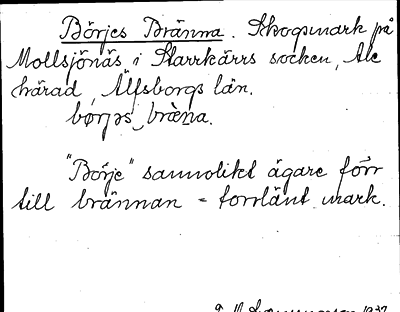 Börjes Bränna. Skogsmark på
Mollsjönäs i Starrkärrs socken, Ale
härad, Älfsborgs län.
børjəs bræna.
"Börje" sannolikt ägare förr
till brännan - torrlänt mark.
1932